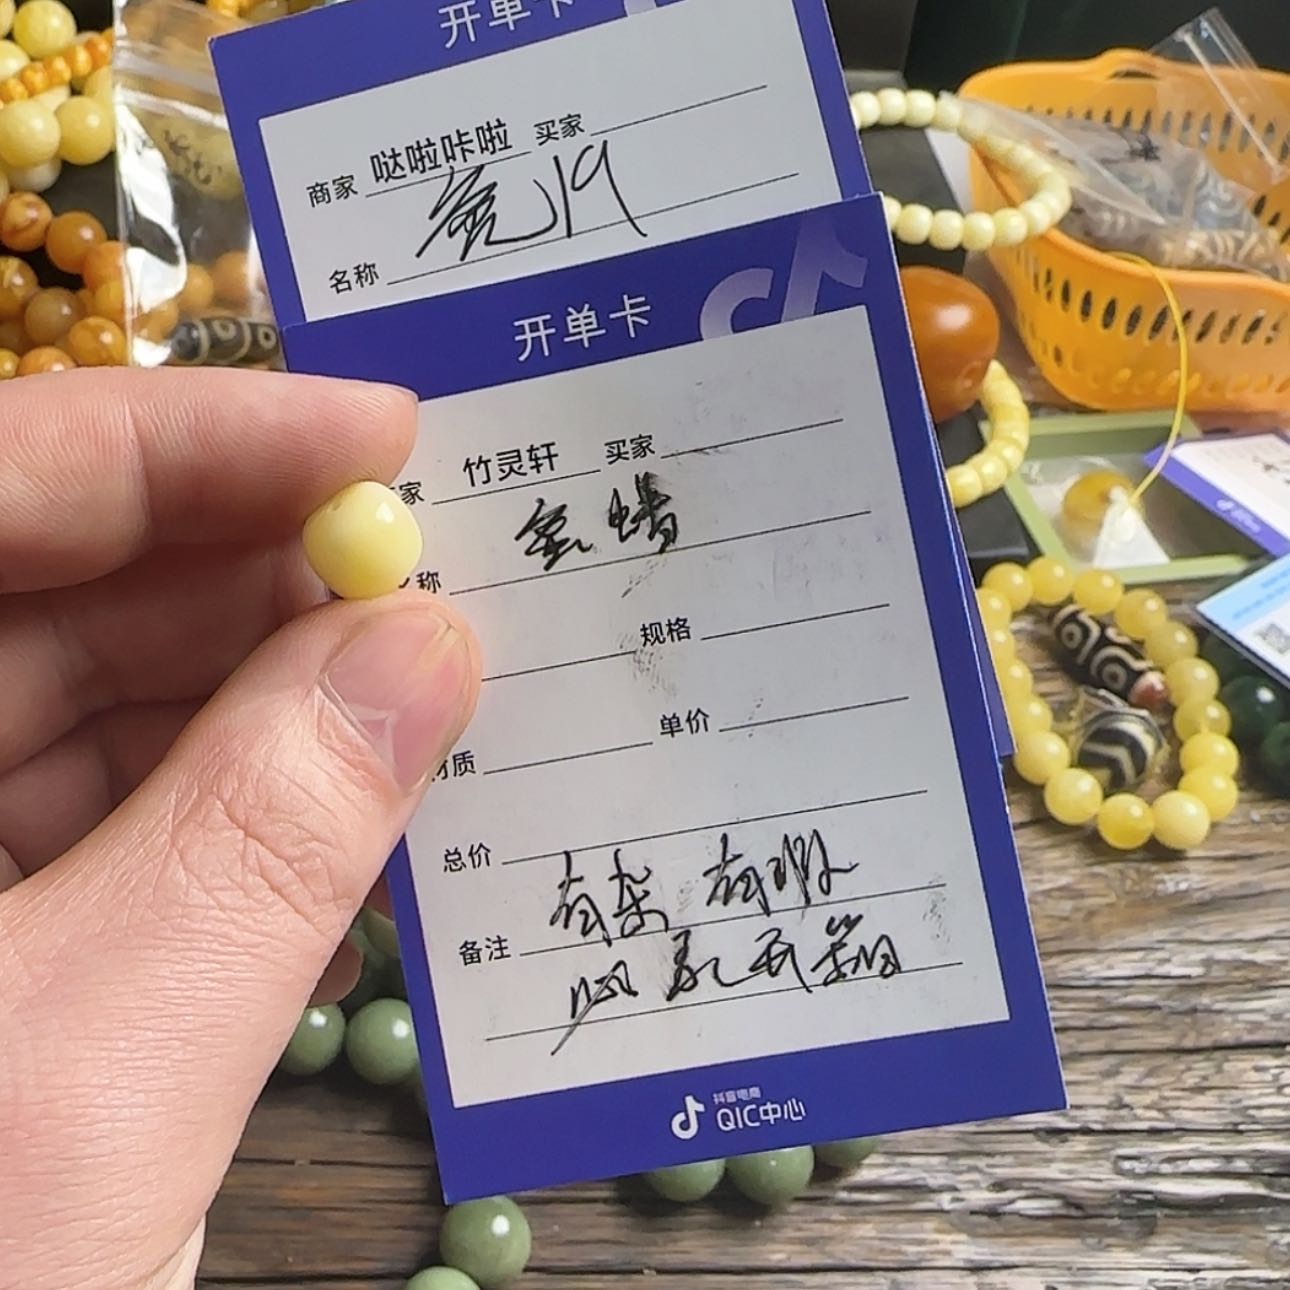 开单卡
商家 哒啦咔啦 买家
名称
开单卡
家 竹灵轩 买家
蜜蜡
称
规格
材质 单价
总价
备注 有杂 有瑕
抖音电商
QIC中心